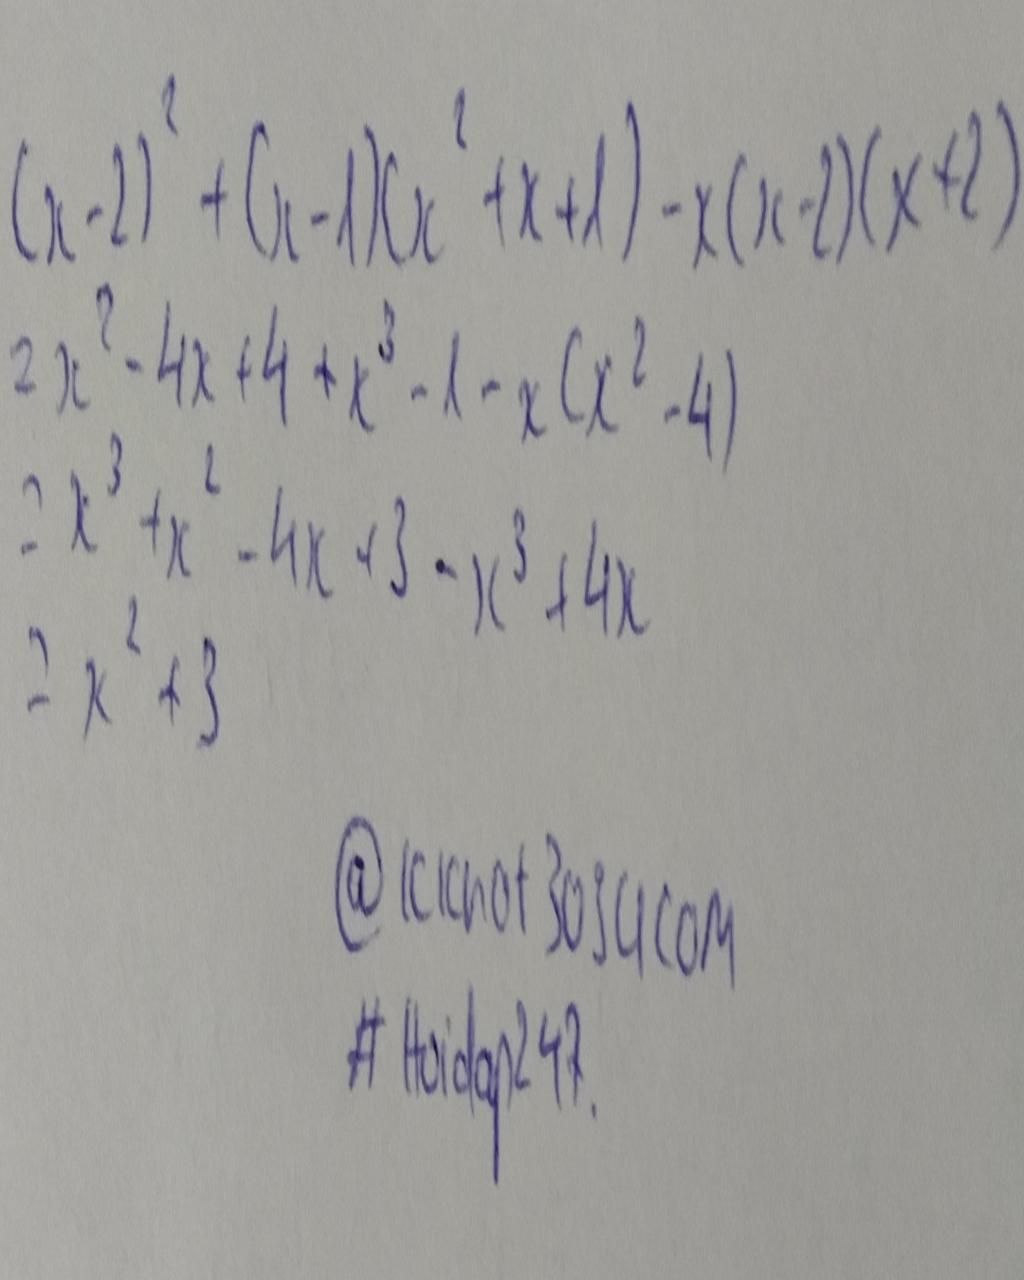 (x-2)² + (x-1)(x² +x+1) -x(x-2)(x+2)
= x² - 4x +4 +x³ -1 - x(x² -4)
= x³ +x² -4x +3 -x³ +4x
= x² +3
@kkhot3034com
#Hoidap247.